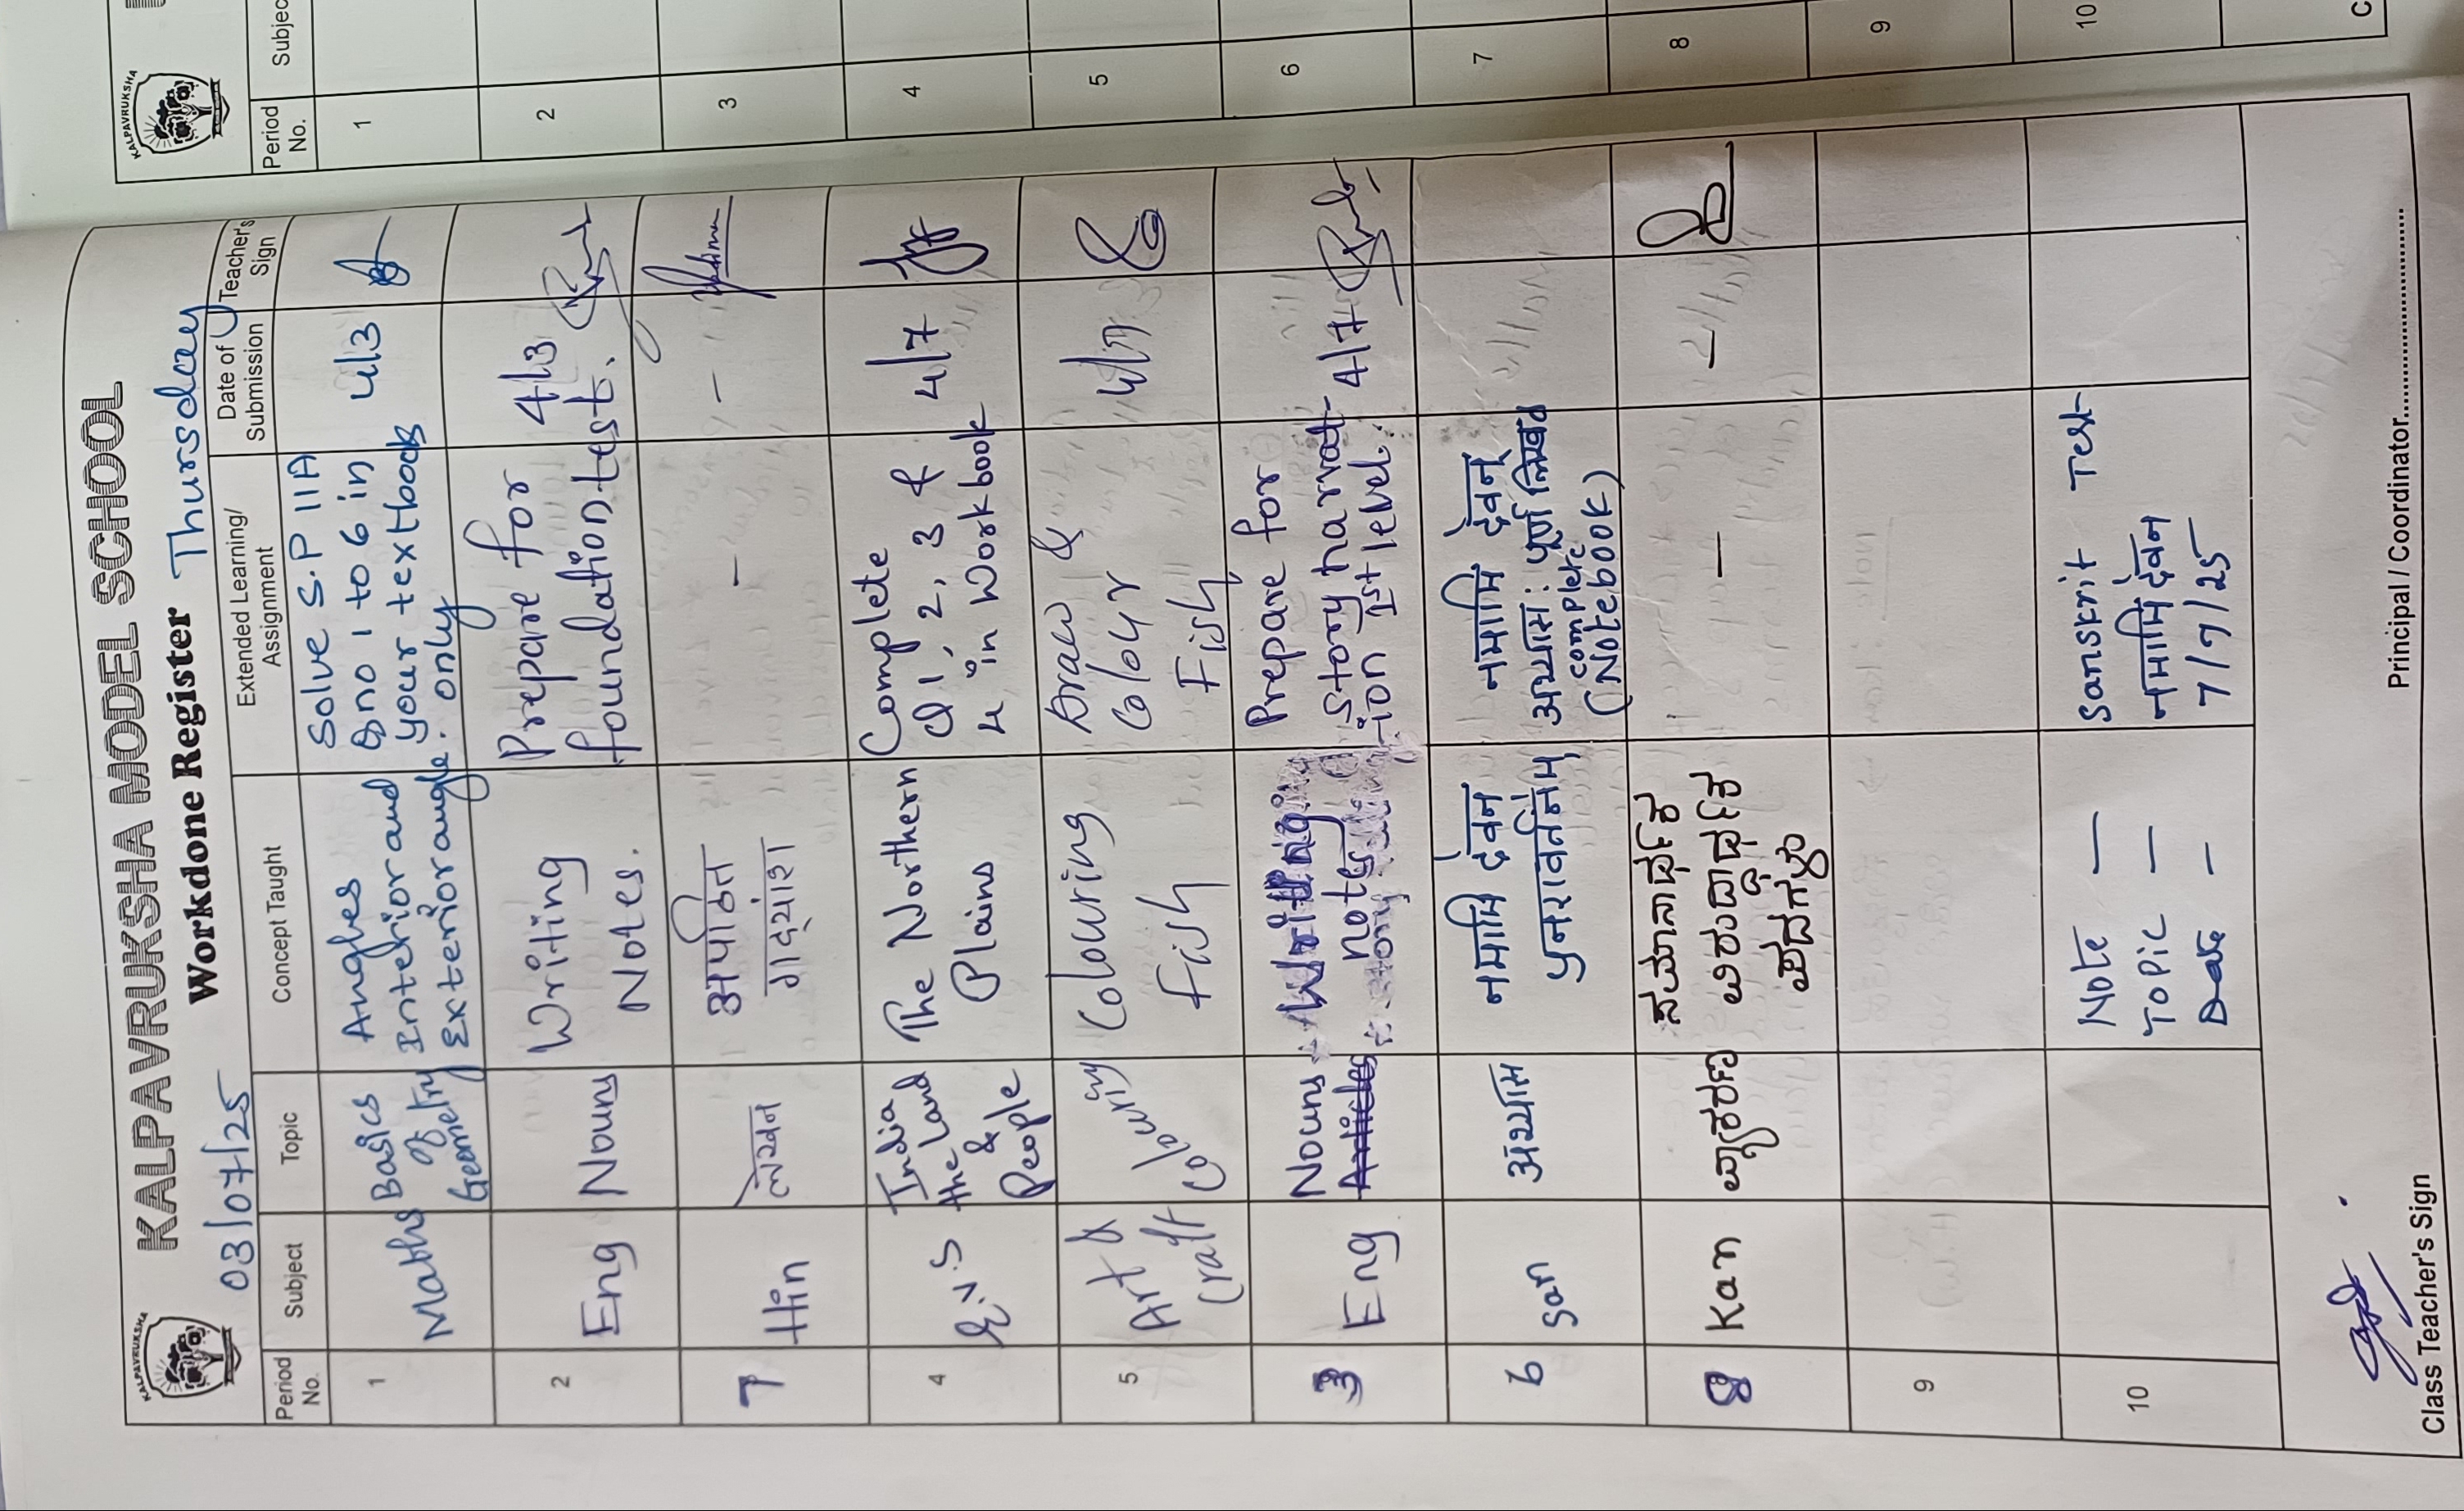 KALPAVRUKSHA
KALPAVRUKSHA MODEL SCHOOL
03/07/25 Workdone Register Thursday
Period No. Subject Topic Concept Taught Extended Learning/ Assignment Date of Submission Teacher's Sign
1 Maths Basics of Geometry Angles Interior and Exterior angle. Solve S.P 11A Qno 1 to 6 in your textbook only 4/3
2 Eng Nouns Writing Notes. Prepare for foundation test. 4/3
7 Hin लेखन अपठित गद्यांश - -
4 E.V.S India the Land & People The Northern Plains Complete Q1, 2, 3 & 4 in workbook 4/7
5 Art & Craft Colouring Colouring Fish Draw & Colour Fish 4/7
3 Eng Nouns Articles Writing notes Prepare for story narrat-ion 1st level. 4/7
6 San अभ्यास नमामि देवन पुनरावर्तनम् नमामि देवन् अभ्यास: पूर्ण complete (Notebook)
8 Kan ವ್ಯಾಕರಣ ಸಮಾನಾರ್ಥಕ ವಿರುದ್ಧಾರ್ಥಕ ಪದಗಳು - -
9
10 Note — Sanskrit Test
Topic — नमामि देवन
Date - 7/7/25
Class Teacher's Sign
Principal / Coordinator
KALPAVRUKSHA
Period No.
Subjec
1
2
3
4
5
6
7
8
9
10
C